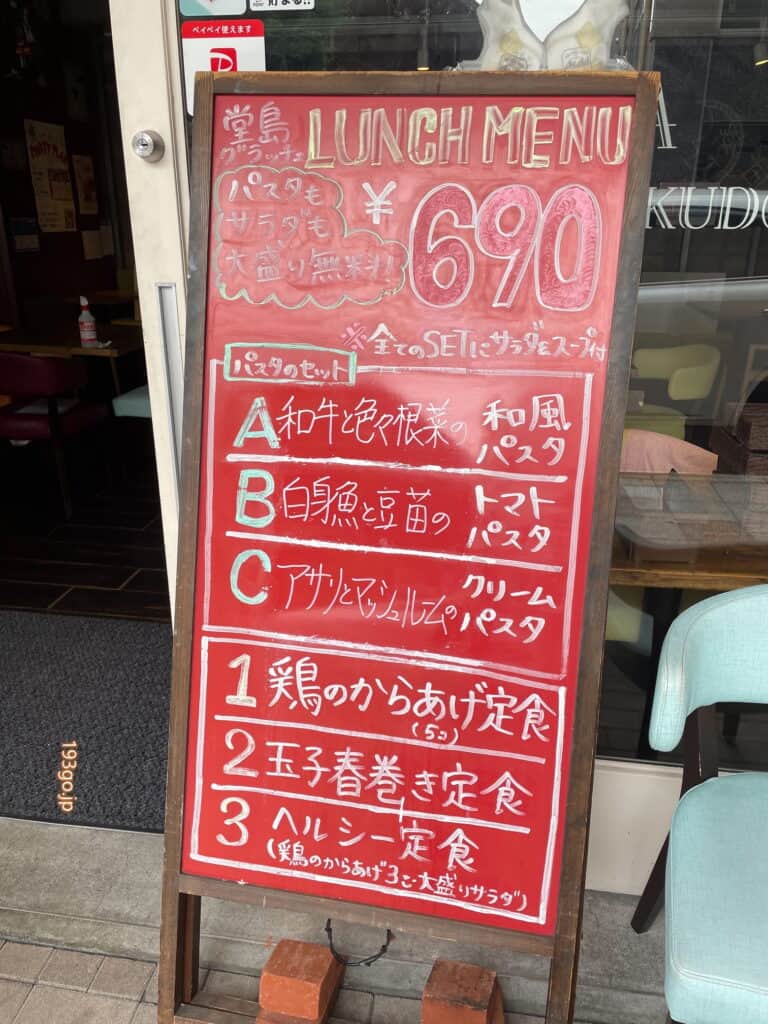 貯まる!!
ペイペイ使えます
堂島
グラッチェ
LUNCH MENU
パスタも
サラダも
大盛り無料!
¥690
※全てのSETにサラダ&スープ付
パスタのセット
A 和牛と色々根菜の 和風パスタ
B 白身魚と豆苗の トマトパスタ
C アサリとマッシュルームの クリームパスタ
1 鶏のからあげ定食
(5コ)
2 玉子春巻き定食
3 ヘルシー定食
(鶏のからあげ3こ・大盛りサラダ)
KUDO
193go.jp